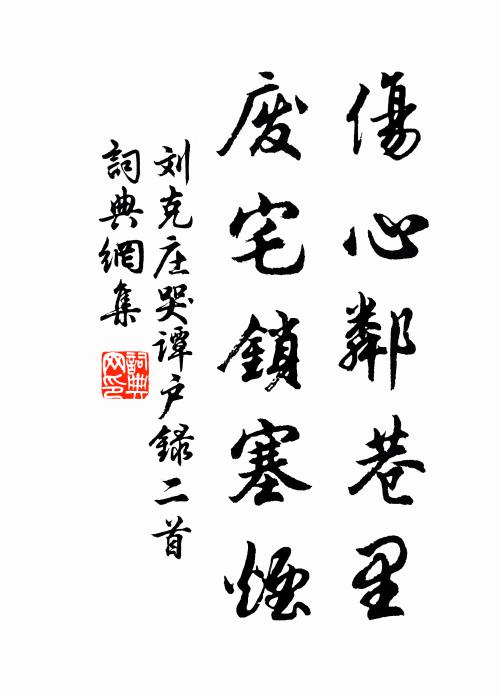 傷心鄰巷里
废宅鎖塞煙
刘克庄哭谭户録二首
詞典網集
詞典網印